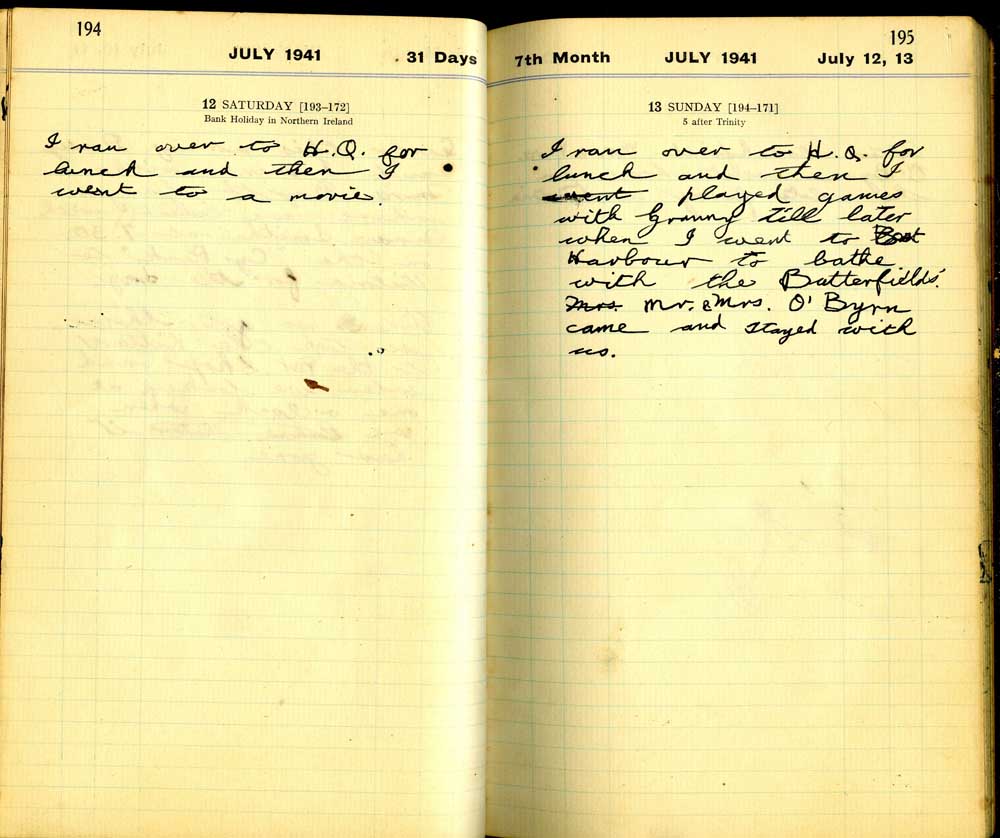 194
JULY 1941
31 Days
12 SATURDAY [193–172]
Bank Holiday in Northern Ireland
I ran over to H.Q. for
lunch and then I
went to a movie.
195
7th Month
JULY 1941
July 12, 13
13 SUNDAY [194–171]
5 after Trinity
I ran over to H.Q. for
lunch and then I
went played games
with Granny till later
when I went to
Harbour to bathe
with the Butterfields'.
Mrs. Mr. & Mrs. O'Byrn
came and stayed with
us.